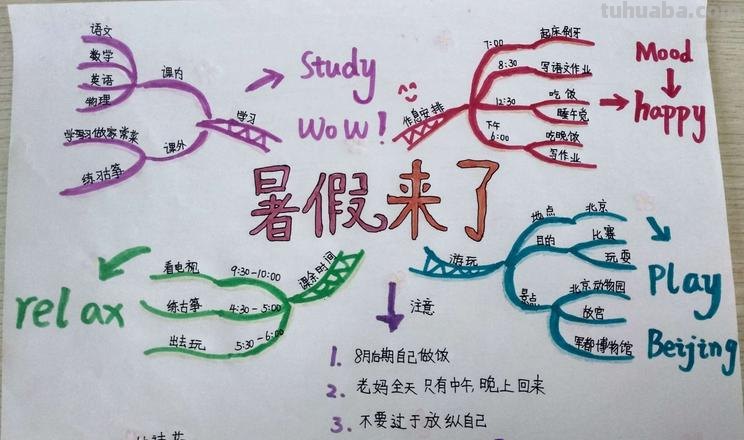 tuhuaba.com
语文
数学
英语
物理
课内
学习做家常菜
练习古筝
课外
学习
Study
WoW!
作息安排
7:00
起床刷牙
8:30
写语文作业
12:30
吃饭
睡午觉
下午
6:00
吃晚饭
写作业
Mood
happy
暑假来了
看电视
9:30-10:00
练古筝
4:30-5:00
出去玩
5:30-6:00
课余时间
relax
游玩
地点
北京
目的
比赛
玩耍
景点
北京动物园
故宫
军都博物馆
Play
Beijing
注意
1. 8月后期自己做饭
2. 老妈全天只有中午,晚上回来
3. 不要过于放纵自己